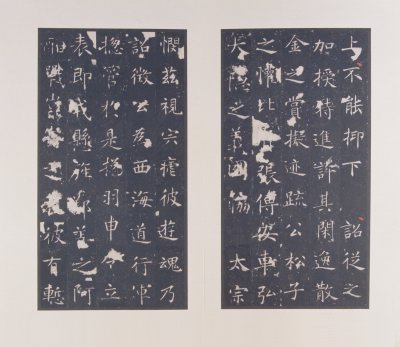 上不能抑下 詔從之
加授特進許其閑逸散
金之賞擬迹疏公松子
之懽比張傅安車弘
之義國 太宗
憫茲視宍彼遊魂乃
詔徵公為西海道行軍
揔管於是揚羽申令立
表即戎縣旌鄯善之阿
之表彼有慙